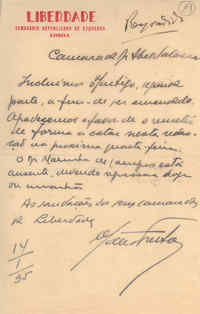 LIBERDADE
SEMANARIO REPUBLICANO DE ESQUERDA
Respondido
Camarada
Incluimos o artigo, apenas
parte, a fim de ser emendado.
Agradecemos o favor de o remeter
de forma a estar nesta redac-
ção na proxima quarta feira.
O Sr. Marinha de Campos está
ausente, devendo regressar hoje
ou amanhã.
As saudações dos seus camaradas
de Liberdade
14
1
35